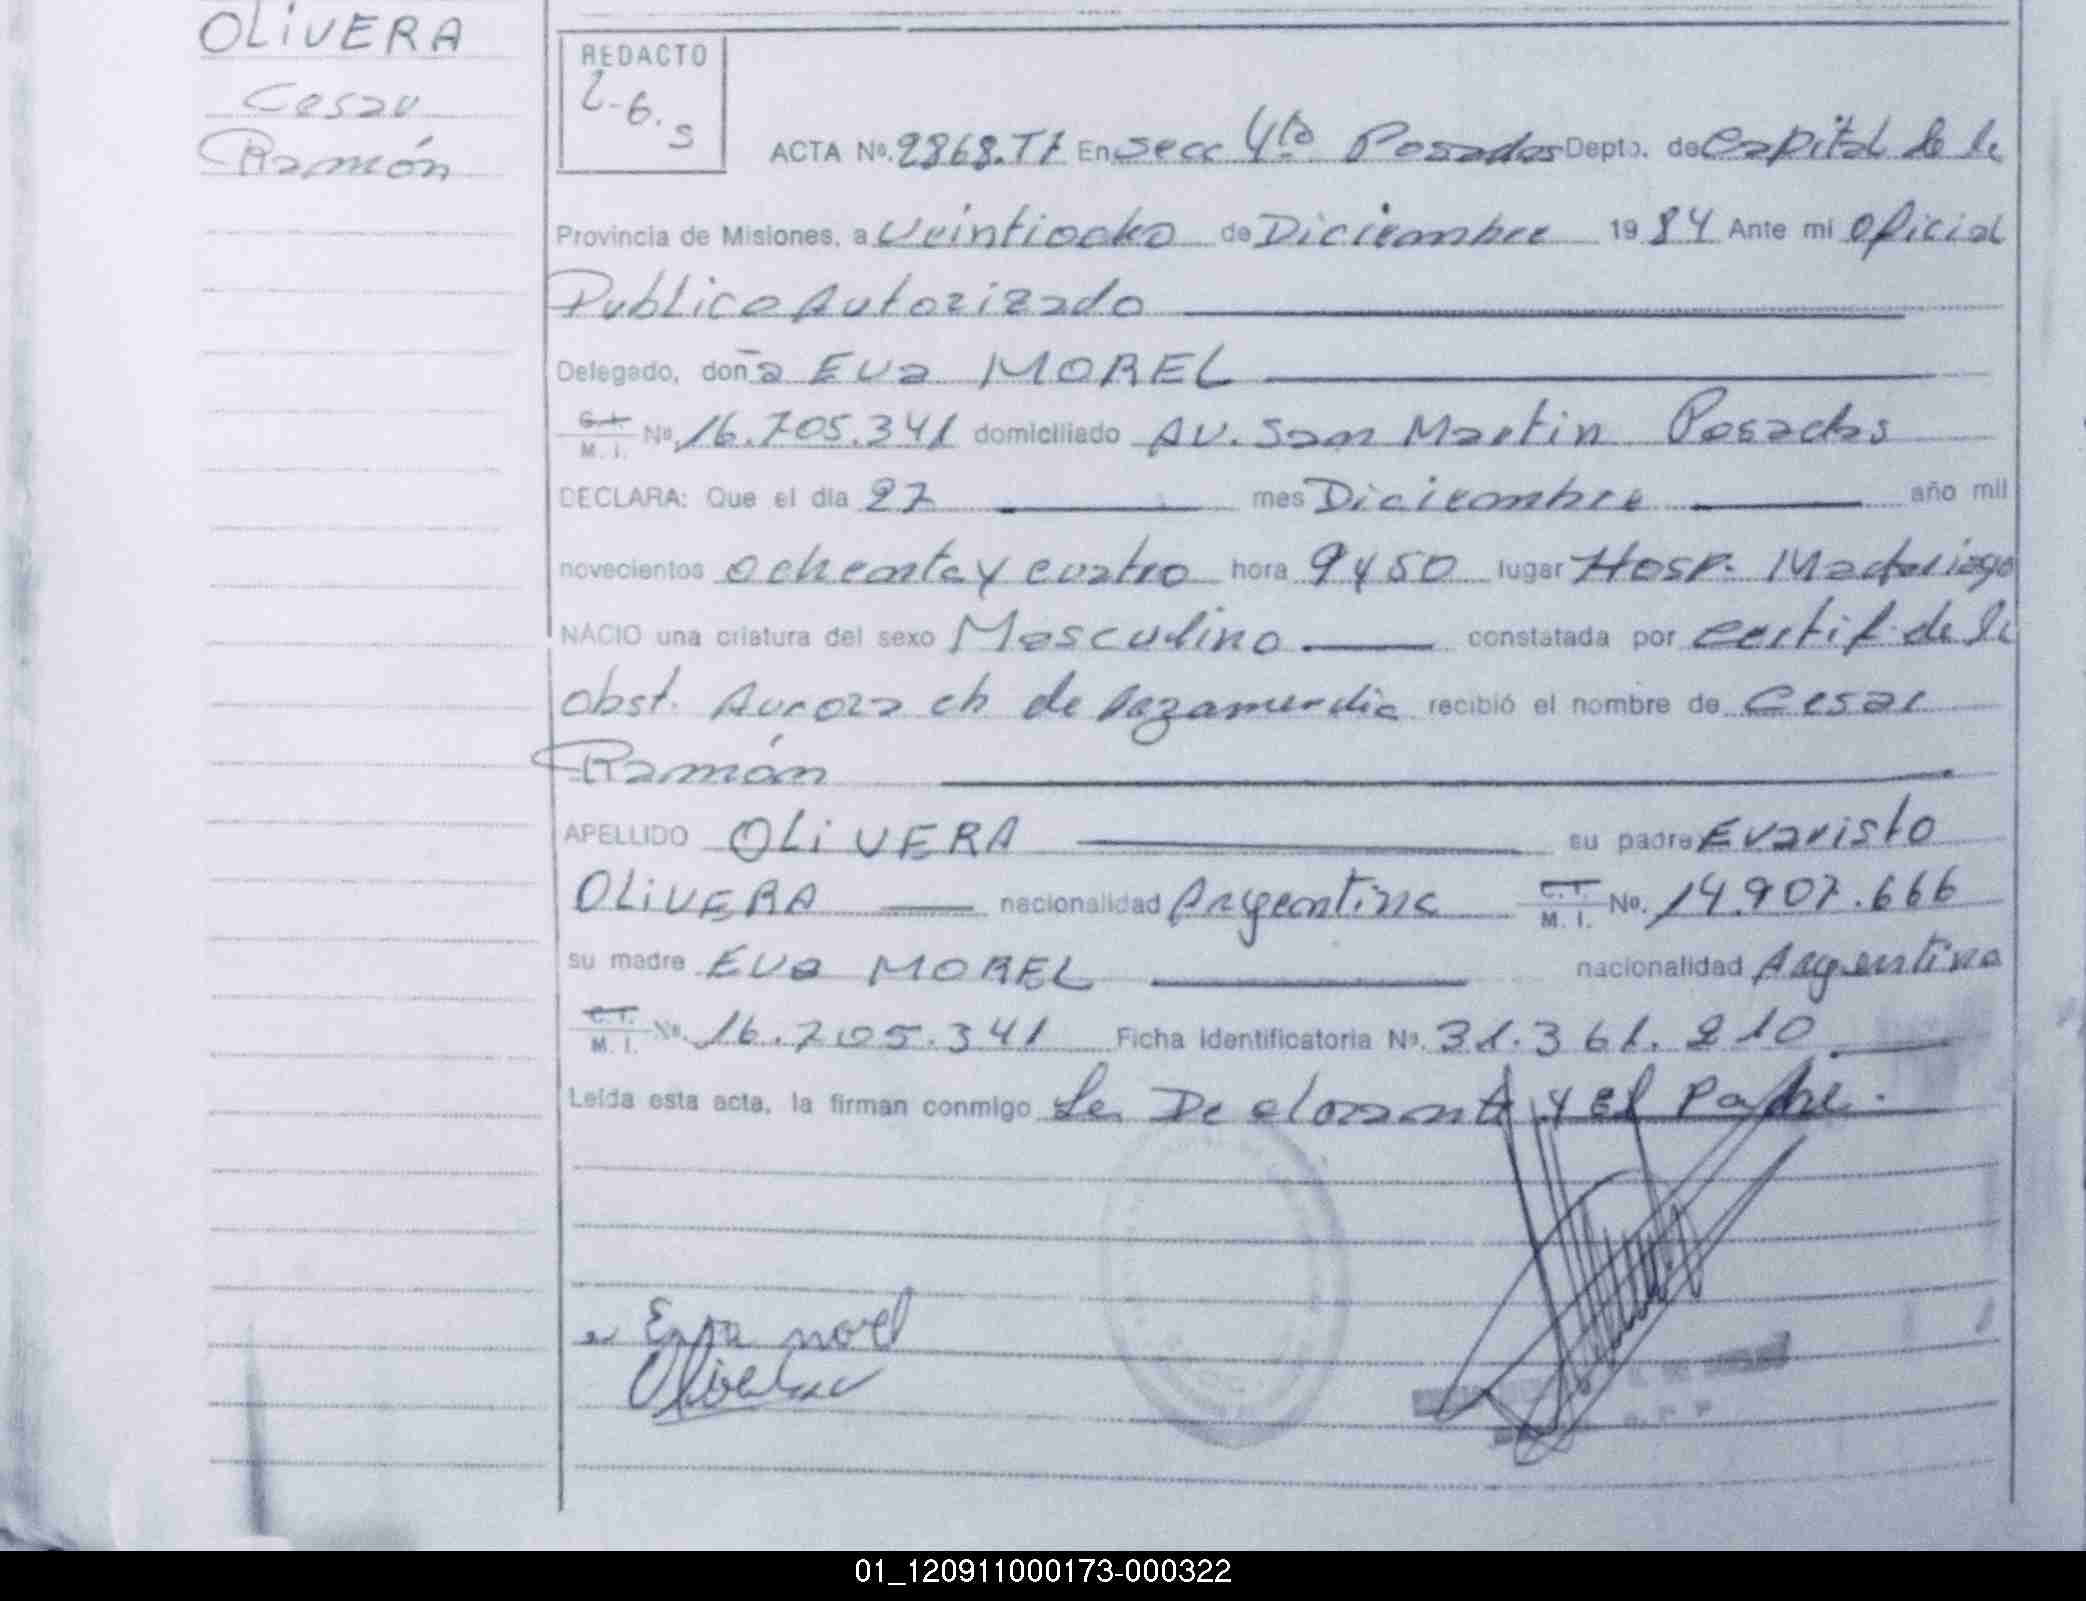 OLIVERA
Cesar
Ramón
REDACTO
ACTA Nº. 2868.T7 En Secc 4ta Posadas Depto. de Capital de la
Provincia de Misiones, a Veintiocho de Diciembre 1984 Ante mi Oficial
Publico Autorizado
Delegado, doña Eva MOREL
C.I. M. I. Nº 16.705.341 domiciliado Av. San Martin Posadas
DECLARA: Que el día 27 mes Diciembre año mil
novecientos ochenta y cuatro hora 9 y 50 lugar Hosp. Madariaga
NACIO una criatura del sexo Masculino constatada por certif. de la
obst. Aurora ch de recibió el nombre de Cesar
Ramón
APELLIDO OLIVERA su padre Evaristo
OLIVERA nacionalidad Argentina C.I. M. I. Nº. 14.907.666
su madre Eva MOREL nacionalidad Argentina
C.I. M. I. Nº. 16.705.341 Ficha Identificatoria Nº. 31.361.210
Leída esta acta, la firman conmigo La Declarante y el Padre.
01_120911000173-000322